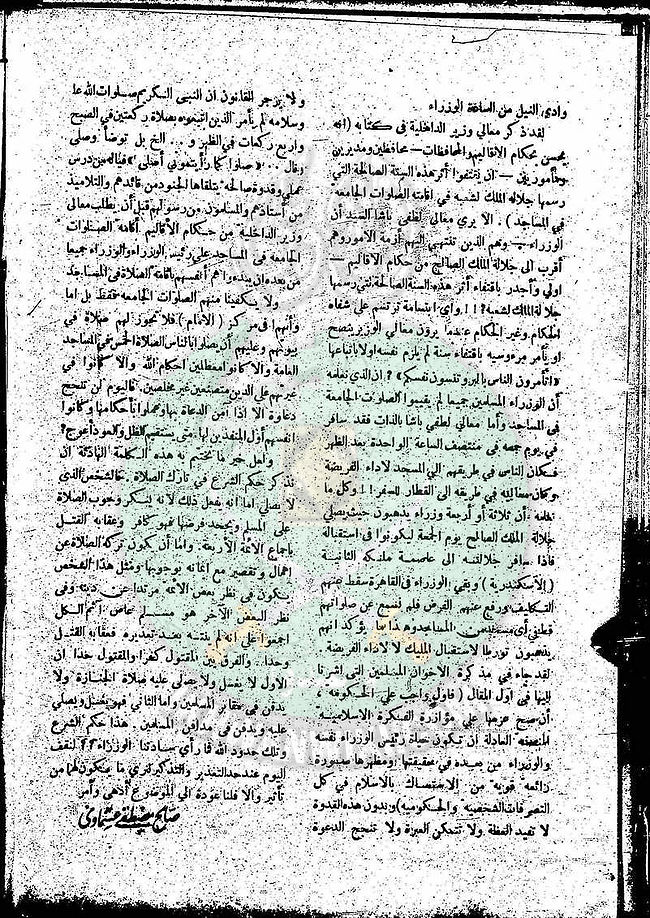 وادي النيل من السادة الوزراء
لقد ذكر معالي وزير الداخلية في كتابه (انه
يحسن بحكام الاقاليم والمحافظات — محافظين ومديرين
ومأمورين — ان يقتفوا أثر هذه السنة الصالحة التي
رسمها جلالة الملك لشعبه في اقامته الصلوات الجامعة
في المساجد) . ألا يرى معالي لطفي باشا السيد ان
الوزراء — وهم الذين تنتهي اليهم أزمة الامور وهم
أقرب الى جلالة الملك الصالح من حكام الاقاليم —
اولى وأجدر باقتفاء أثر هذه السنة الصالحة التي رسمها
جلالة الملك لشعبه ؟!! واي ابتسامة ترتسم على شفاه
الحكام وغير الحكام عندما يرون معالي الوزير ينصح
او يأمر مرءوسيه باقتفاء سنة لم يلزم نفسه اولا باتباعها
« أتأمرون الناس بالبر وتنسون انفسكم » ؟ ان الذي نعلمه
أن الوزراء المسلمين جميعا لم يقيموا الصلوات الجامعة
في المساجد وأما معالي لطفي باشا بالذات فقد سافر
في يوم جمعه في منتصف الساعة الواحدة بعد الظهر
فكان الناس في طريقهم الى المسجد لاداء الفريضة
وكان معاليه في طريقه الى القطار للسفر !! وكل ما
نعلمه أن ثلاثة أو أربعة وزراء يذهبون حيث يصلي
جلالة الملك الصالح يوم الجمعة ليكونوا في استقباله
فاذا سافر جلالته الى عاصمة ملكه الثانية
(الاسكندرية) وبقي الوزراء في القاهرة سقط عنهم
التكليف ورفع عنهم الفرض فلم نسمع عن صلواتهم
قط في أي مسجد من المساجد وهذا مما يؤكد انهم
يذهبون تورطا لاستقبال المليك لا لاداء الفريضة .
لقد جاء في مذكرة الاخوان المسلمين التي اشرنا
اليها في اول المقال ( فاول واجب على الحكومة ،
أن صح عزمها على مؤازرة الفكرة الاسلامية
المنصفة العادلة ان تكون حياة رئيس الوزراء نفسه
والوزراء من بعده في حقيقتها ومظهرها صورة
رائعة قوية من الاستمساك بالاسلام في كل
التصرفات الشخصية والحكومية) وبدون هذه القدوة
لا تفيد العظة ولا تتمكن العبرة ولا تنجح الدعوة
ولا يزجر القانون ان النبي الكريم صلوات الله عليه
وسلامه لم يأمر الذين اتبعوه بصلاة ركعتين في الصبح
واربع ركعات في الظهر و ... الخ بل توضأ وصلى
وقال .. « صلوا كما رأيتموني أصلي » فياله من درس
عملي وقدوة صالحة يتلقاها الجنود من قائدهم والتلاميذ
من أستاذهم والمسلمون من رسولهم قبل أن يطلب معالي
وزير الداخلية من حكام الأقاليم اقامة الصلوات
الجامعة في المساجد على رئيس الوزراء والوزراء جميعا
من بعده ان يبدءوا هم أنفسهم باقامة الصلاة في المساجد
ولا يكفينا منهم الصلوات الجامعة فقط بل اما
وأنهم في مركز (الامام) فلا يجوز لهم صلاة في
بيوتهم وعليهم أن يصلوا بالناس الصلاة الخمس في المساجد
العامة والا كانوا معطلين احكام الله والا كانوا في
غيرتهم على الدين متصنعين غير مخلصين . فاليوم لن تنجح
دعاوة الا اذا آمن الدعاة بها وعملوا بأحكامها وكانوا
انفسهم أول المنفذين لها ، متى يستقيم الظل والعود أعوج ؟
ولعل خير ما نختم به هذه الكلمة الهادئة ان
نذكر حكم الشرع في تارك الصلاة . فالشخص الذي
لا يصلي اما انه يفعل ذلك لأنه ينكر وجوب الصلاة
على المسلم ويجحد فرضها فهو كافر وعقابه القتل
باجماع الائمة الأربعة . واما أن يكون تركه الصلاة عن
اهمال وتقصير مع ايمانه بوجوبها ومثل هذا الشخص
يكون في نظر بعض الائمة مرتدا عن دينه وفي
نظر البعض الآخر هو مسلم عاص انما الكل
اجمعوا على انه لم ينتبه بعد تعذيره فعقابه القتل
وحدا .. والفرق بين المقتول كفرا والمقتول حدا ان
الاول لا يغسل ولا يصلى عليه صلاة الجنازة ولا
يدفن في مقابر المسلمين واما الثاني فهو يغسل ويصلى
عليه ويدفن في مدافن المسلمين . هذا حكم الشرع
وتلك حدود الله فما رأي سيادتنا الوزراء ؟؟ لنقف
اليوم عند حد التعذير والتذكير لنرى ما سيكون لهما من
تأثير والا فلنا عودة الى الموضوع أدهى وأمر
صالح مصطفى عشماوي